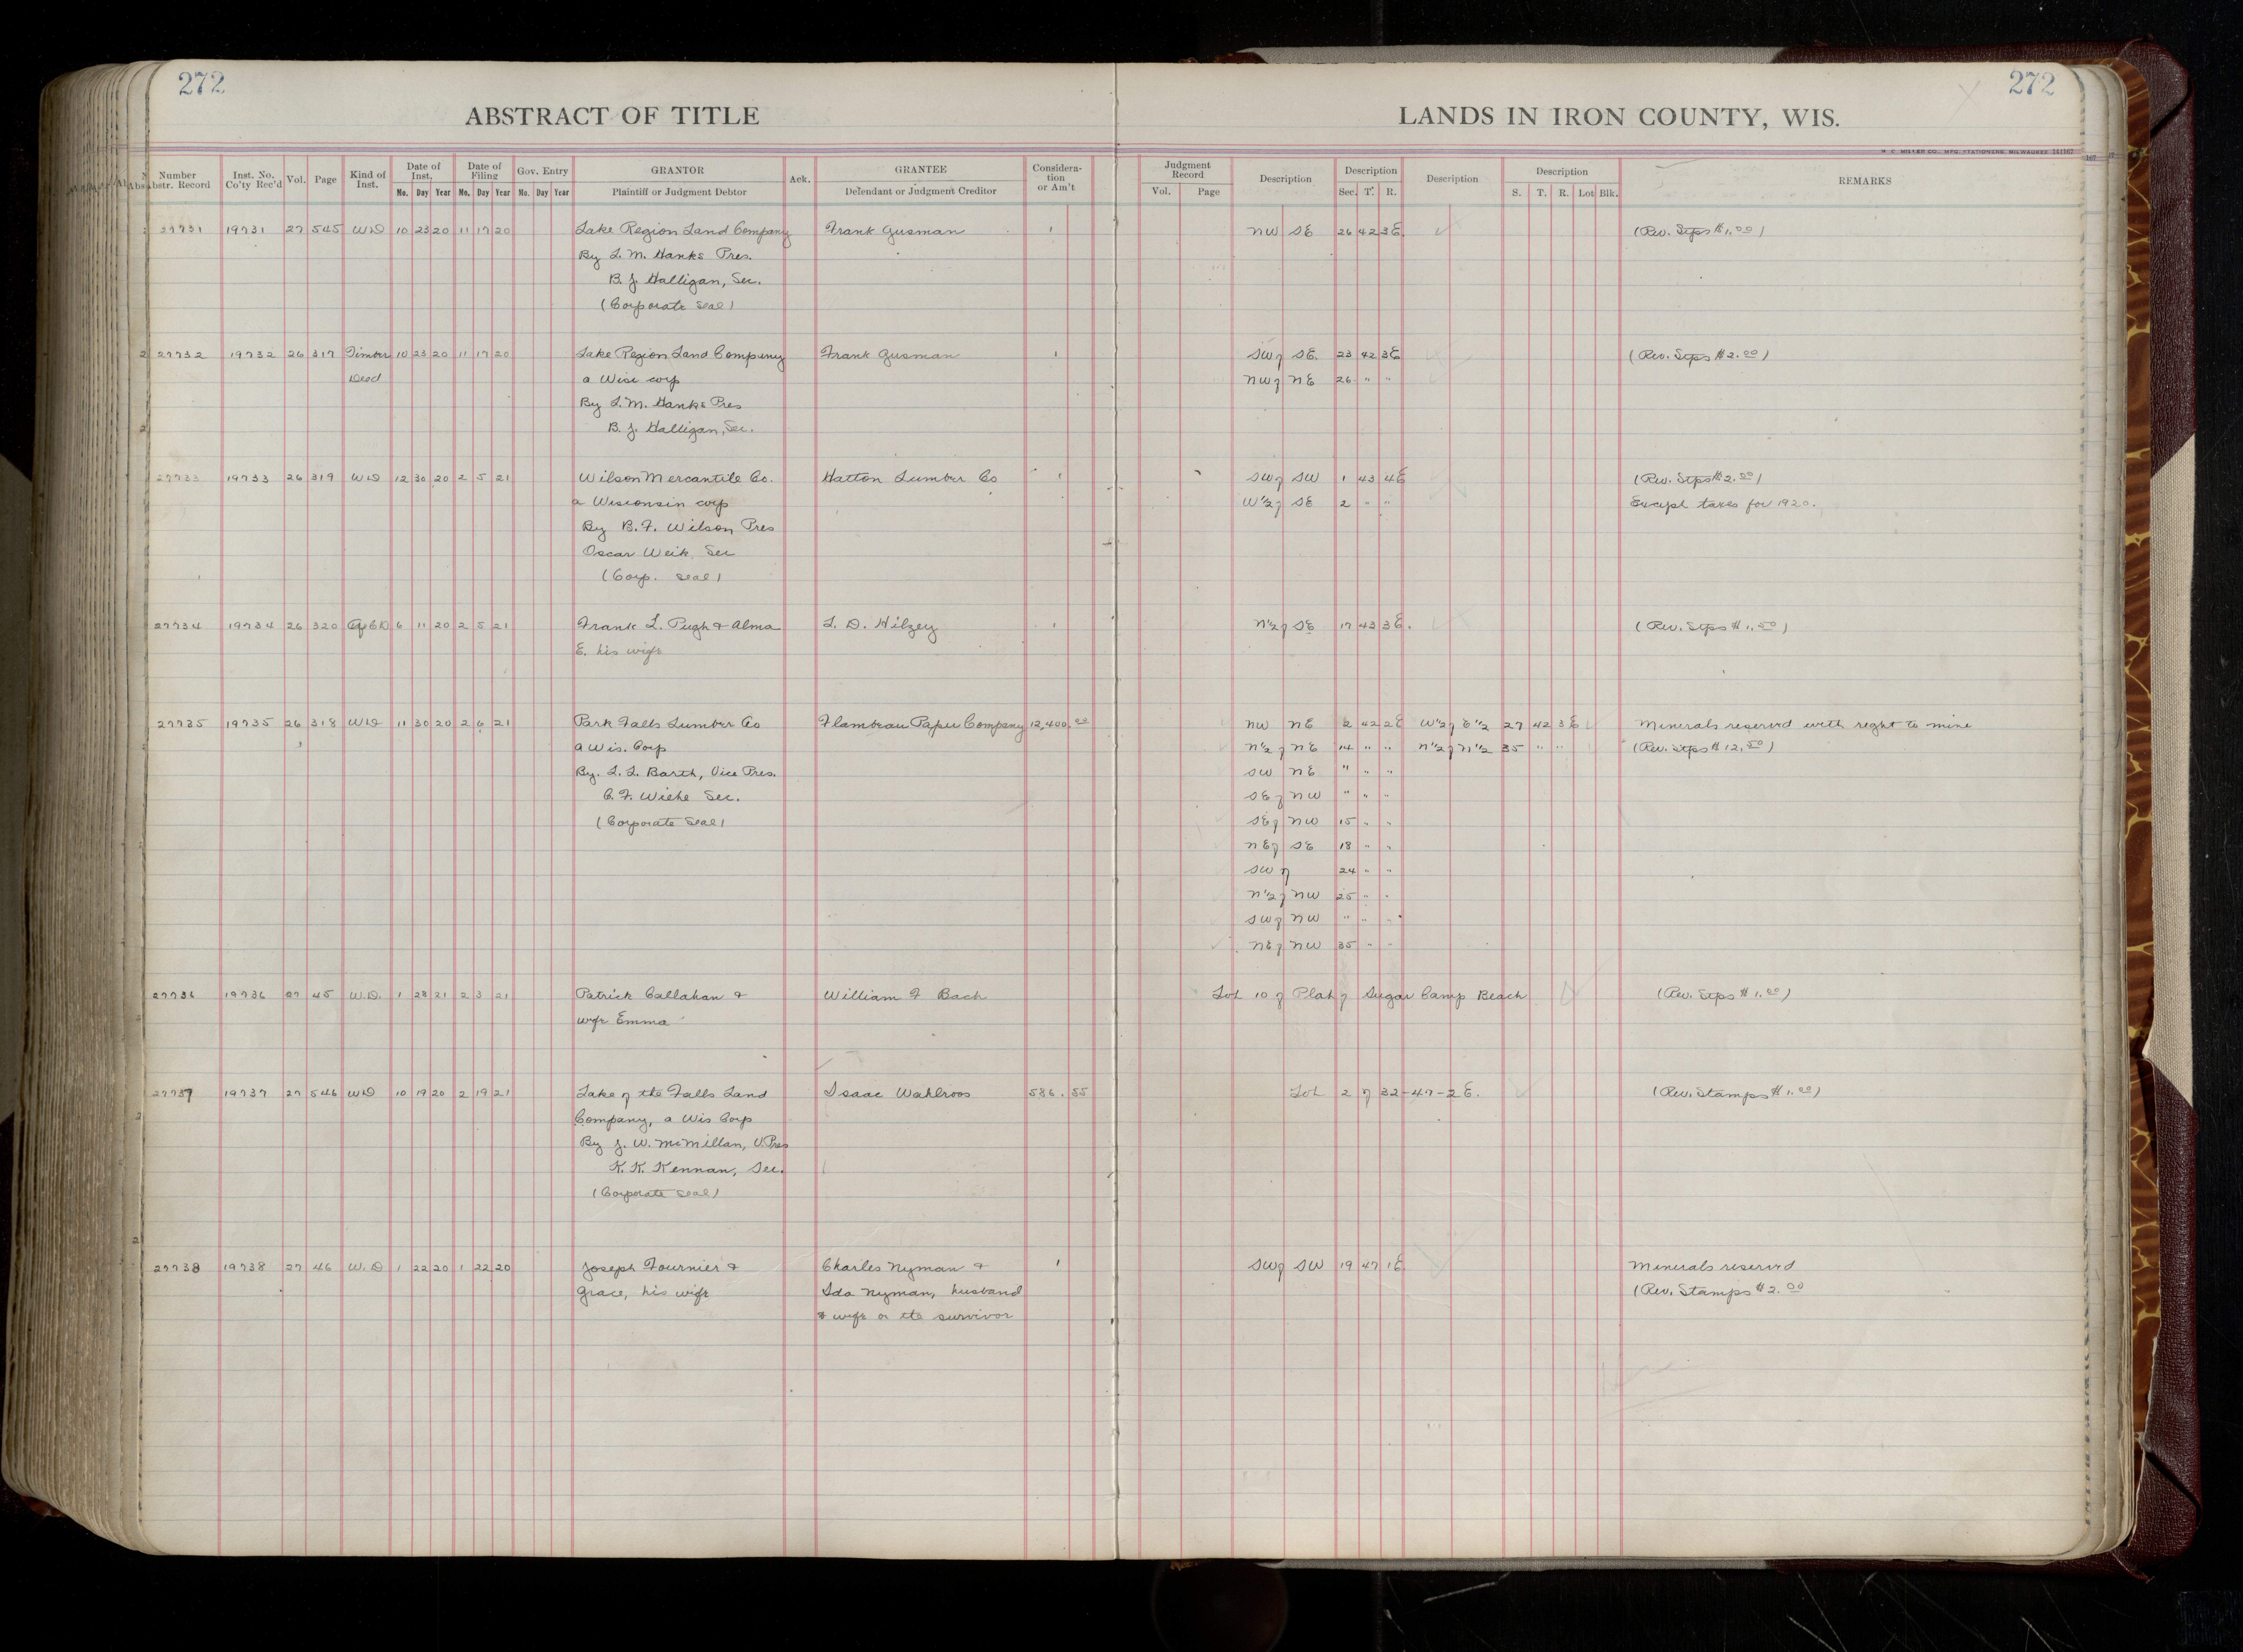 272
272
ABSTRACT OF TITLE
LANDS IN IRON COUNTY, WIS.
H. C. MILLER CO., MFG. STATIONERS, MILWAUKEE 141167
Number Abstr. Record | Inst. No. Co'ty Rec'd | Vol. | Page | Kind of Inst. | Date of Inst. | Date of Filing | Gov. Entry | GRANTOR | Ack. | GRANTEE | Consideration or Am't | Judgment Record | Description | Description | Description | Description | REMARKS
Mo. Day Year | Mo. Day Year | Mo. Day Year | Plaintiff or Judgment Debtor | Defendant or Judgment Creditor | Vol. | Page | Sec. T. R. | S. T. R. Lot Blk.
27731 19731 27 545 WD 10 23 20 11 17 20 Lake Region Land Company Frank Gusman 1 NW SE 26 42 3E (Rev. Stps $1.00)
By L. M. Hanks Pres.
B. J. Halligan, Sec.
(Corporate Seal)
27732 19732 26 317 Timber 10 23 20 11 17 20 Lake Region Land Company Frank Gusman 1 SW of SE 23 42 3E (Rev. Stps $2.00)
Deed a Wisc corp NW of NE 26 " "
By L. M. Hanks Pres
B. J. Halligan, Sec.
27733 19733 26 319 WD 12 30 20 2 5 21 Wilson Mercantile Co. Hatton Lumber Co 1 SW of SW 1 43 4E (Rev. Stps $2.50)
a Wisconsin corp W 1/2 of SE 2 " " Except taxes for 1920.
By B. F. Wilson Pres
Oscar Weik Sec
(Corp. Seal)
27734 19734 26 320 6 11 20 2 5 21 Frank L. Pugh & Alma L. D. Hilzey 1 N 1/2 of SE 17 43 3E. (Rev. Stps $1.50)
E. his wife
27735 19735 26 318 WD 11 30 20 2 6 21 Park Falls Lumber Co Flambeau Paper Company 12,400.00 NW NE 2 42 2E W 1/2 of E 1/2 27 42 3E Minerals reserved with right to mine
a Wis. Corp N 1/2 of NE 14 " " N 1/2 of N 1/2 35 " " (Rev. Stps $12.50)
By. L. L. Barth, Vice Pres. SW NE " " "
C. F. Wiehe Sec. SE of NW " " "
(Corporate Seal) SE of NW 15 " "
NE of SE 18 " "
SW of 24 " "
N 1/2 of NW 25 " "
SW of NW " " "
NE of NW 35 " "
27736 19736 27 45 W.D. 1 28 21 2 3 21 Patrick Callahan & William F Bach Lot 10 of Plat of Sugar Camp Beach (Rev. Stps $1.00)
wife Emma
27737 19737 27 546 WD 10 19 20 2 19 21 Lake of the Falls Land Isaac Wahlroos 586.55 Lot 2 of 32-47-2E. (Rev. Stamps $1.00)
Company, a Wis Corp
By J. W. McMillan, V. Pres
K. K. Kennan, Sec.
(Corporate Seal)
27738 19738 27 46 W.D 1 22 20 1 22 20 Joseph Fournier & Charles Nyman & 1 SW of SW 19 47 1E. Minerals reserved
Grace, his wife Ida Nyman, husband (Rev. Stamps $2.00
& wife or the survivor